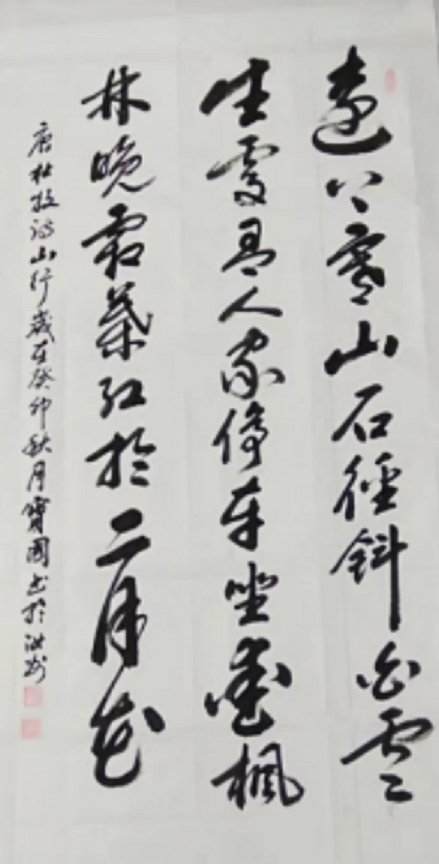 遠上寒山石徑斜白雲
生處有人家停車坐愛楓
林晚霜葉紅於二月花
唐杜牧詩山行歲在癸卯秋月寶國書於洪州